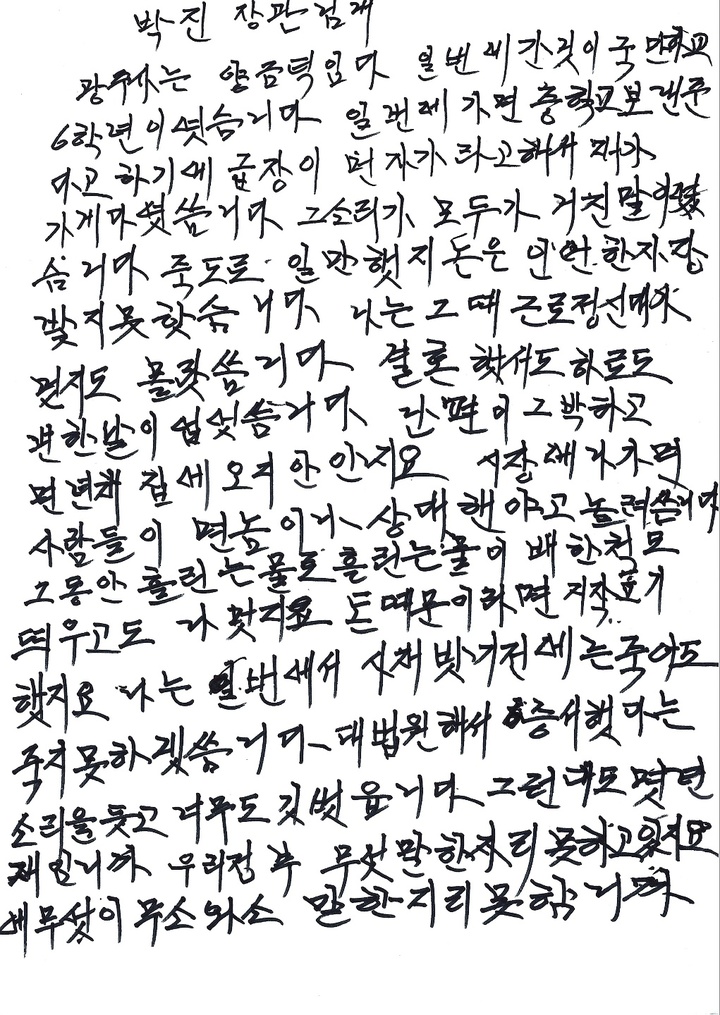 박진 장관님개
광주사는 양금덕입니다 일번에 간것이 국민학교
6학년이엿습니다 일번에 가면 중학교보낸준
다고 하기에 급장이 먼자가라고해서 재가
가게대엿씀니다 그소리가 모두가 거진말이엿
슴니다 죽도로 일만햇지 돈은 안한자
밫지못핫슴니다 나는 그때 근로정신대가
뭔지도 몰랏씀니다 결혼 햇서도 하로도
팬한날이 업섯씀니다 난편이 그박하고
면년채 집에 오지안안지요 시장에 나가면
사람들이 면놈이나 상대햇야고 놀려씀니다
그동안 흘린는물로 흘린는물이 배한척모
띄우고도 나맛지요 돈때문이라면 지작포기
햇지요 나는 일번에서 사채밧기전에는죽어도
죽지못하겟씀니다 대법원해서 증서햇다는
소리을듯고 너무도 깃벗읍니다 그런대도 몃년
재임니까 우리정부 무섯말한자리못하고잇지요
왜무섯이 무소와소 말한자리못함니까